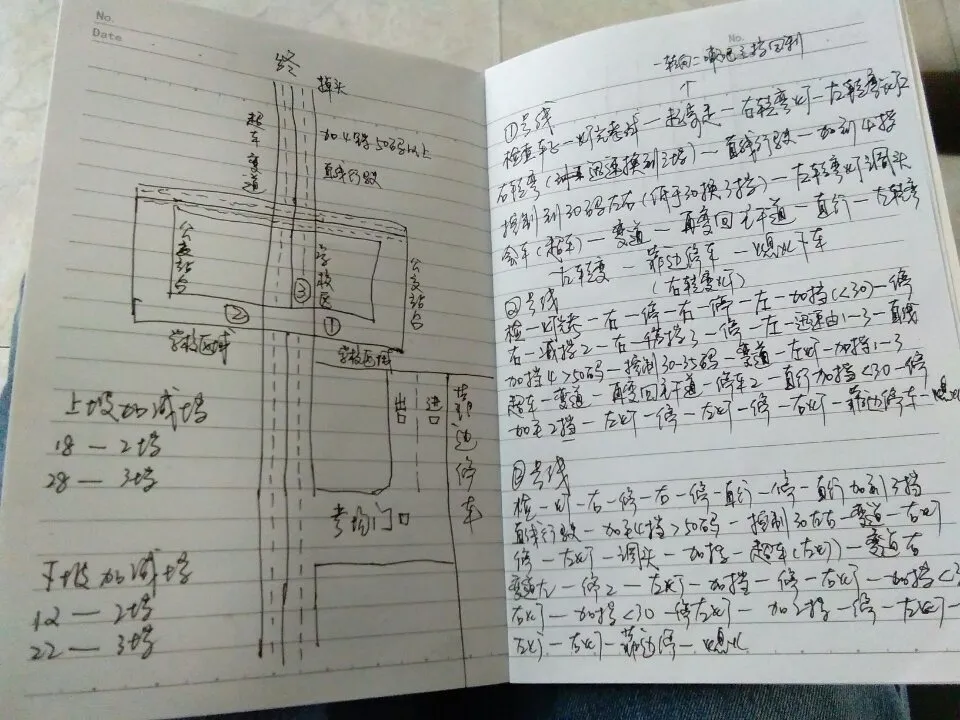 No.
Date
终
掉头
超车变道
加4档50码以上
直线行驶
公交站台
学校区
公交站台
③
②
①
学校区域
学校区域
出口
进口
靠边停车
考场门口
上坡加减档
18 — 2档
28 — 3档
下坡加减档
12 — 2档
22 — 3档
No.
①号线
检查车 — 灯光考试 — 起步走 — 右转弯灯 — 左转弯
右转弯(迅速换到3档) — 直线行驶 — 加到4档
控制到30码左右(低于30换3档) — 左转弯灯调头
会车(超车) — 变道 — 再变回主干道 — 直行 — 左转弯
左转弯 — 靠边停车 — 熄火下车
(右转弯灯)
②号线
检 — 灯光 — 右 — 停 — 右 — 停 — 左 — 加挡(<30) — 停
右 — 减挡2 — 右 — 挡3 — 停 — 左 — 迅速由1—3 — 直线
加挡4>50码 — 控制30-35码 — 变道 — 左灯 — 加挡1—3
超车 — 变道 — 再变回主干道 — 停车2 — 直行加挡<30 — 停
加至2挡 — 左灯 — 停 — 左灯 — 停 — 右灯 — 靠边停车 — 熄火
号线
检 — 灯 — 右 — 停 — 右 — 停 — 直行 — 停 — 直行加到3挡
直线行驶 — 加至4挡>50码 — 控制30左右 — 变道 — 右灯
停 — 左灯 — 调头 — 加挡 — 超车(左灯) — 变道右
变道左 — 停2 — 左灯 — 加挡 — 停 — 右灯 — 加挡<3
右灯 — 加挡<30 — 停左灯 — 加2挡 — 停 — 左灯 —
左灯 — 右灯 — 靠边停 — 熄火